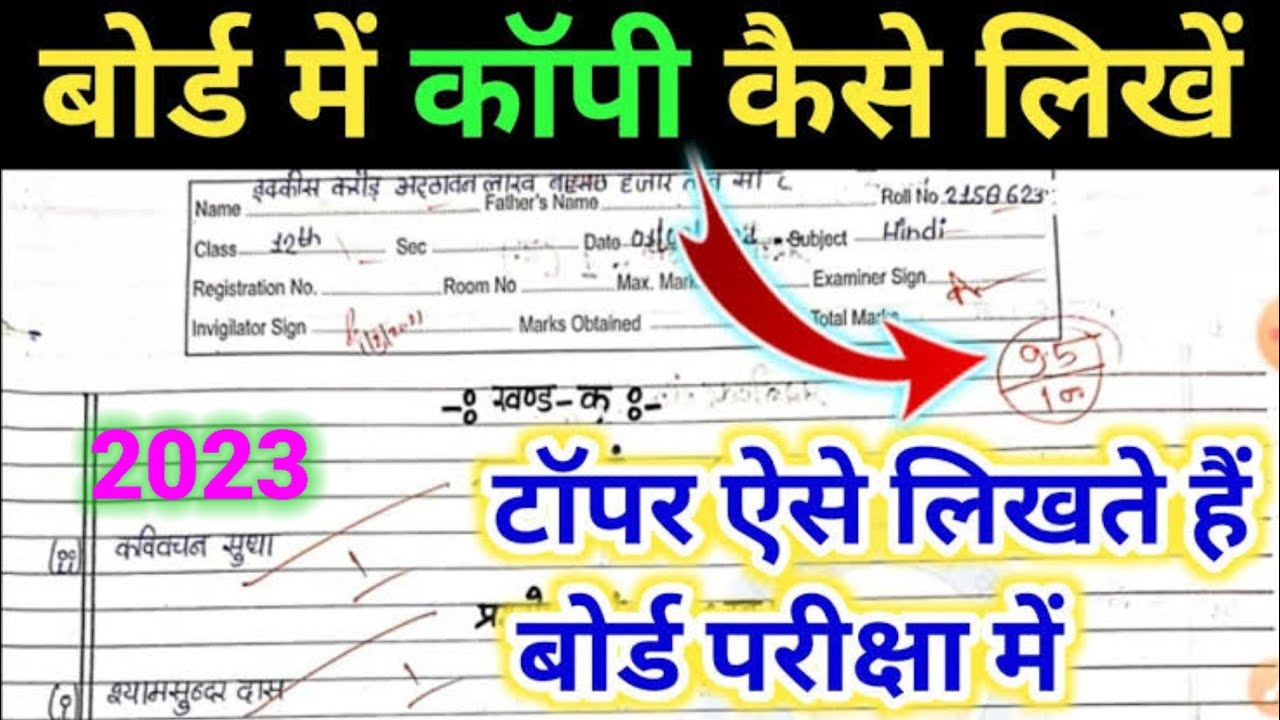 बोर्ड में कॉपी कैसे लिखें
इक्कीस करोड़ अट्ठावन लाख हजार सौ
Name Father's Name Roll No 2158623
Class 12th Sec Date Subject Hindi
Registration No. Room No Max. Examiner Sign
Invigilator Sign Marks Obtained Total
95
-ः खण्ड-क ः-
2023
टॉपर ऐसे लिखते हैं
कविवचन सुधा
बोर्ड परीक्षा में
श्यामसुन्दर दास